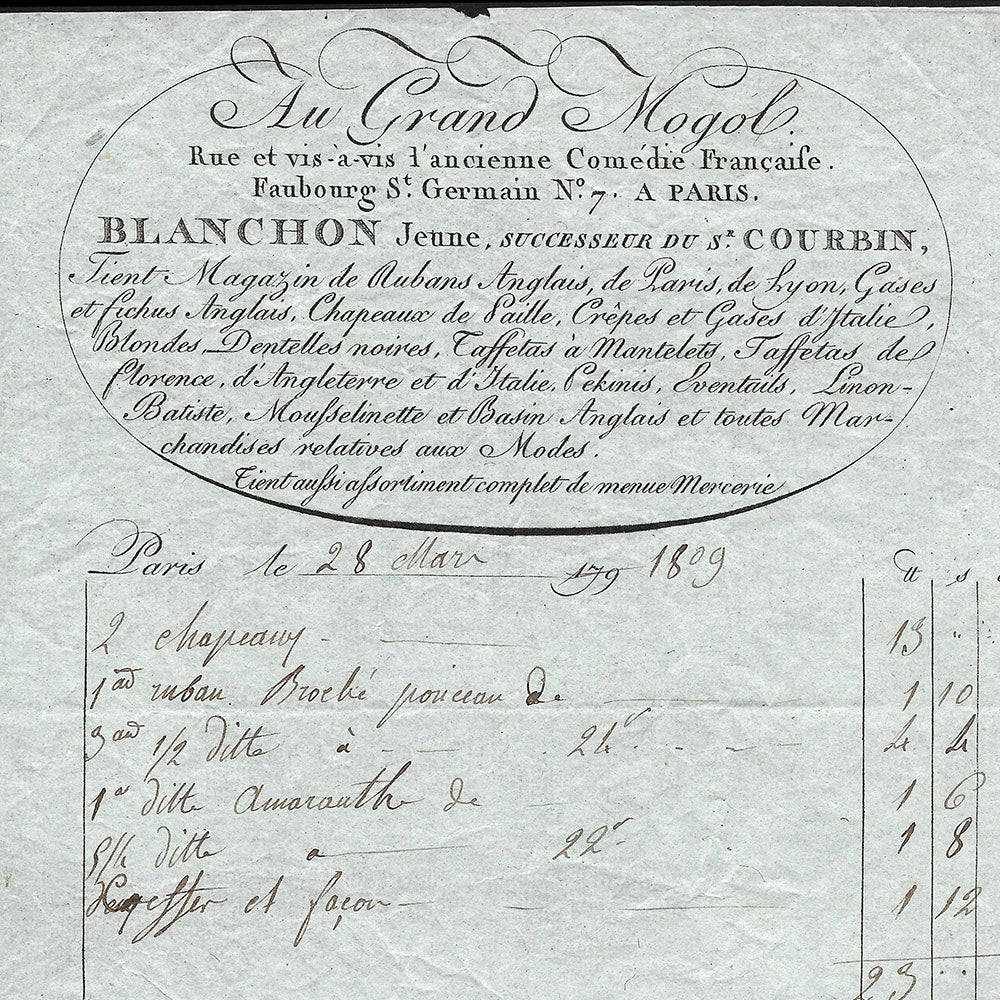 Au Grand Mogol.
Rue et vis-à-vis l'ancienne Comédie Françaiſe.
Faubourg S.t Germain N.o 7. A PARIS.
BLANCHON Jeune, SUCCESSEUR DU S.R COURBIN,
Tient Magazin de Rubans Anglais, de Paris, de Lyon, Gases
et fichus Anglais, Chapeaux de Paille, Crêpes et Gases d'Italie,
Blondes, Dentelles noires, Taffetas à Mantelets, Taffetas de
florence, d'Angleterre et d'Italie, Pekinis, Eventails, Linon-
Batiste, Mouſselinette et Basin Anglais et toutes Mar-
chandises relatives aux Modes.
Tient auſsi aſsortiment complet de menue Mercerie
Paris le 28 Mars 179 1809
tt s
2 chapeaux - 13 "
1 au ruban Broché ponceau de 1 10
3 au 1/2 ditte à 24 s. 4 4
1 a ditte Amaranthe de 1 6
5/4 ditte a 22 s. 1 8
et façon - 1 12
23 ..